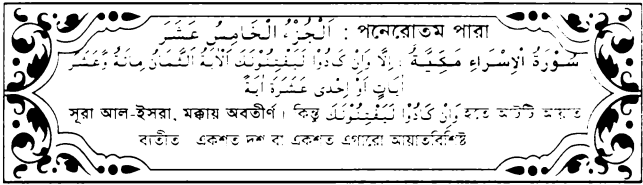 اَلْجُزْءُ الْخَامِسُ عَشَرَ : পনেরোতম পারা
سُوْرَةُ الْاِسْرَاءِ مَكِّيَّةٌ : اِلَّا وَاِنْ كَادُوْا لَيَفْتِنُوْنَكَ اَلْاٰيَةُ الثَّمَانُ مِائَةٌ وَّعَشْرُ
اٰيَاتٍ اَوْ اِحْدٰى عَشَرَةَ اٰيَةً
সূরা আল-ইসরা, মক্কায় অবতীর্ণ। কিন্তু وَاِنْ كَادُوْا لَيَفْتِنُوْنَكَ হতে আটটি আয়াত
ব্যতীত একশত দশ বা একশত এগারো আয়াতবিশিষ্ট